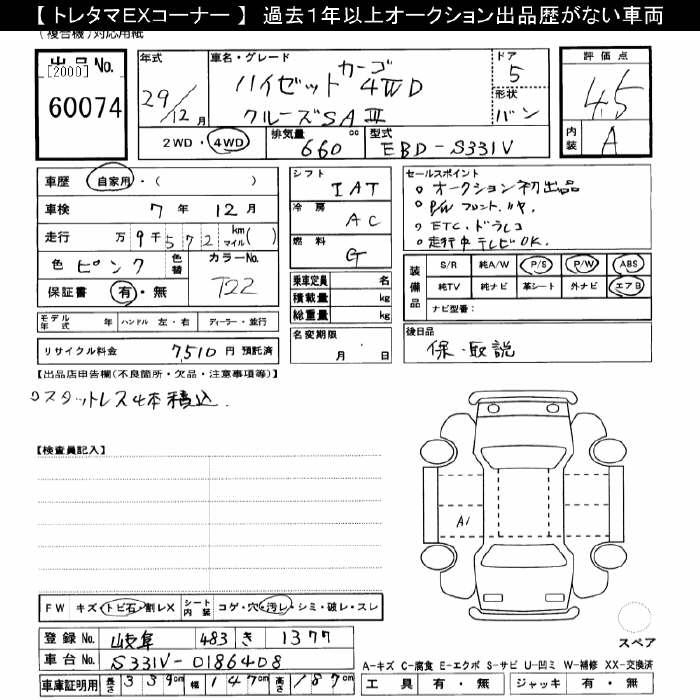 【 トレタマEXコーナー 】 過去1年以上オークション出品歴がない車両
(複合機)対応用紙
出品No.
[2000]
60074
年式
29/12月
車名・グレード
ハイゼット カーゴ 4WD
クルーズSA Ⅲ
ドア
5
形状
バン
評価点
4.5
内装
A
2WD・4WD
排気量
660 cc
型式
EBD-S331V
車歴 自家用・( )
車検 7年 12月
走行 万9千572 km マイル( )
色 ピンク 色替
カラーNo.
T22
保証書 有・無
シフト
IAT
冷房
AC
燃料
G
乗車定員 名
積載量 kg
総重量 kg
セールスポイント
○オークション初出品
○P/W フロント.リヤ.
○ETC.ドラレコ
○走行中テレビOK.
装備品
S/R 純A/W P/S P/W ABS
純TV 純ナビ 革シート 外ナビ エアB
ナビ型番:
モデル年式 年 ハンドル 左・右 ディーラー・並行
リサイクル料金 7510円 預託済
名変期限
月 日
後日品
保.取説
【出品店申告欄(不良箇所・欠品・注意事項等)】
○スタットレス4本積込.
【検査員記入】
A1
FW キズ・トビ石・割レX シート内装 コゲ・穴・汚レ・シミ・破レ・スレ
スペア
登録No. 岐阜 483 き 1377
車台No. S331V-0186408
車庫証明用 長さ 339cm 幅 147cm 高さ 187cm
A-キズ C-腐食 E-エクボ S-サビ U-凹ミ W-補修 XX-交換済
工具 有・無 ジャッキ 有・無